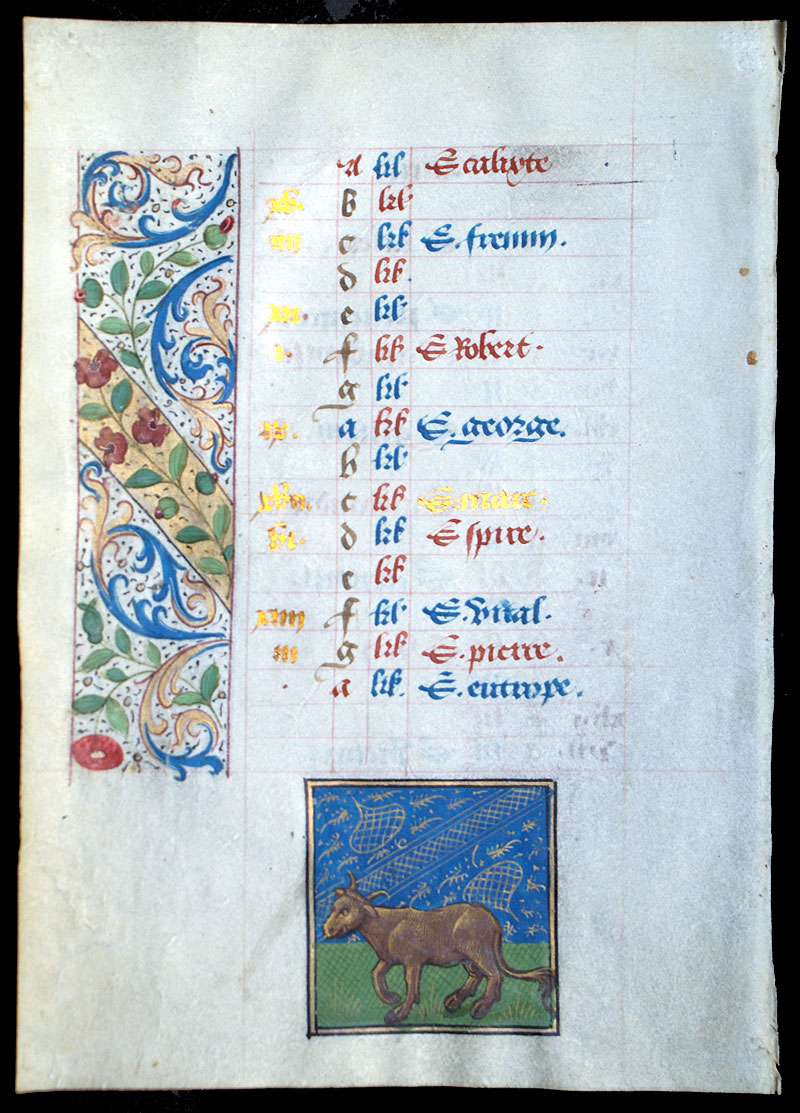 A kl S calixte
xv. b kl
iiii c kl S. fremin.
d kl.
xii. e kl
i. f kl S Robert.
g kl
ix. a kl S. george.
b kl
xvii. c kl S. marc.
vi. d kl S spire.
e kl
xiiii f kl S. vital.
iii g kl S. pierre.
a kl. S. eutrope.